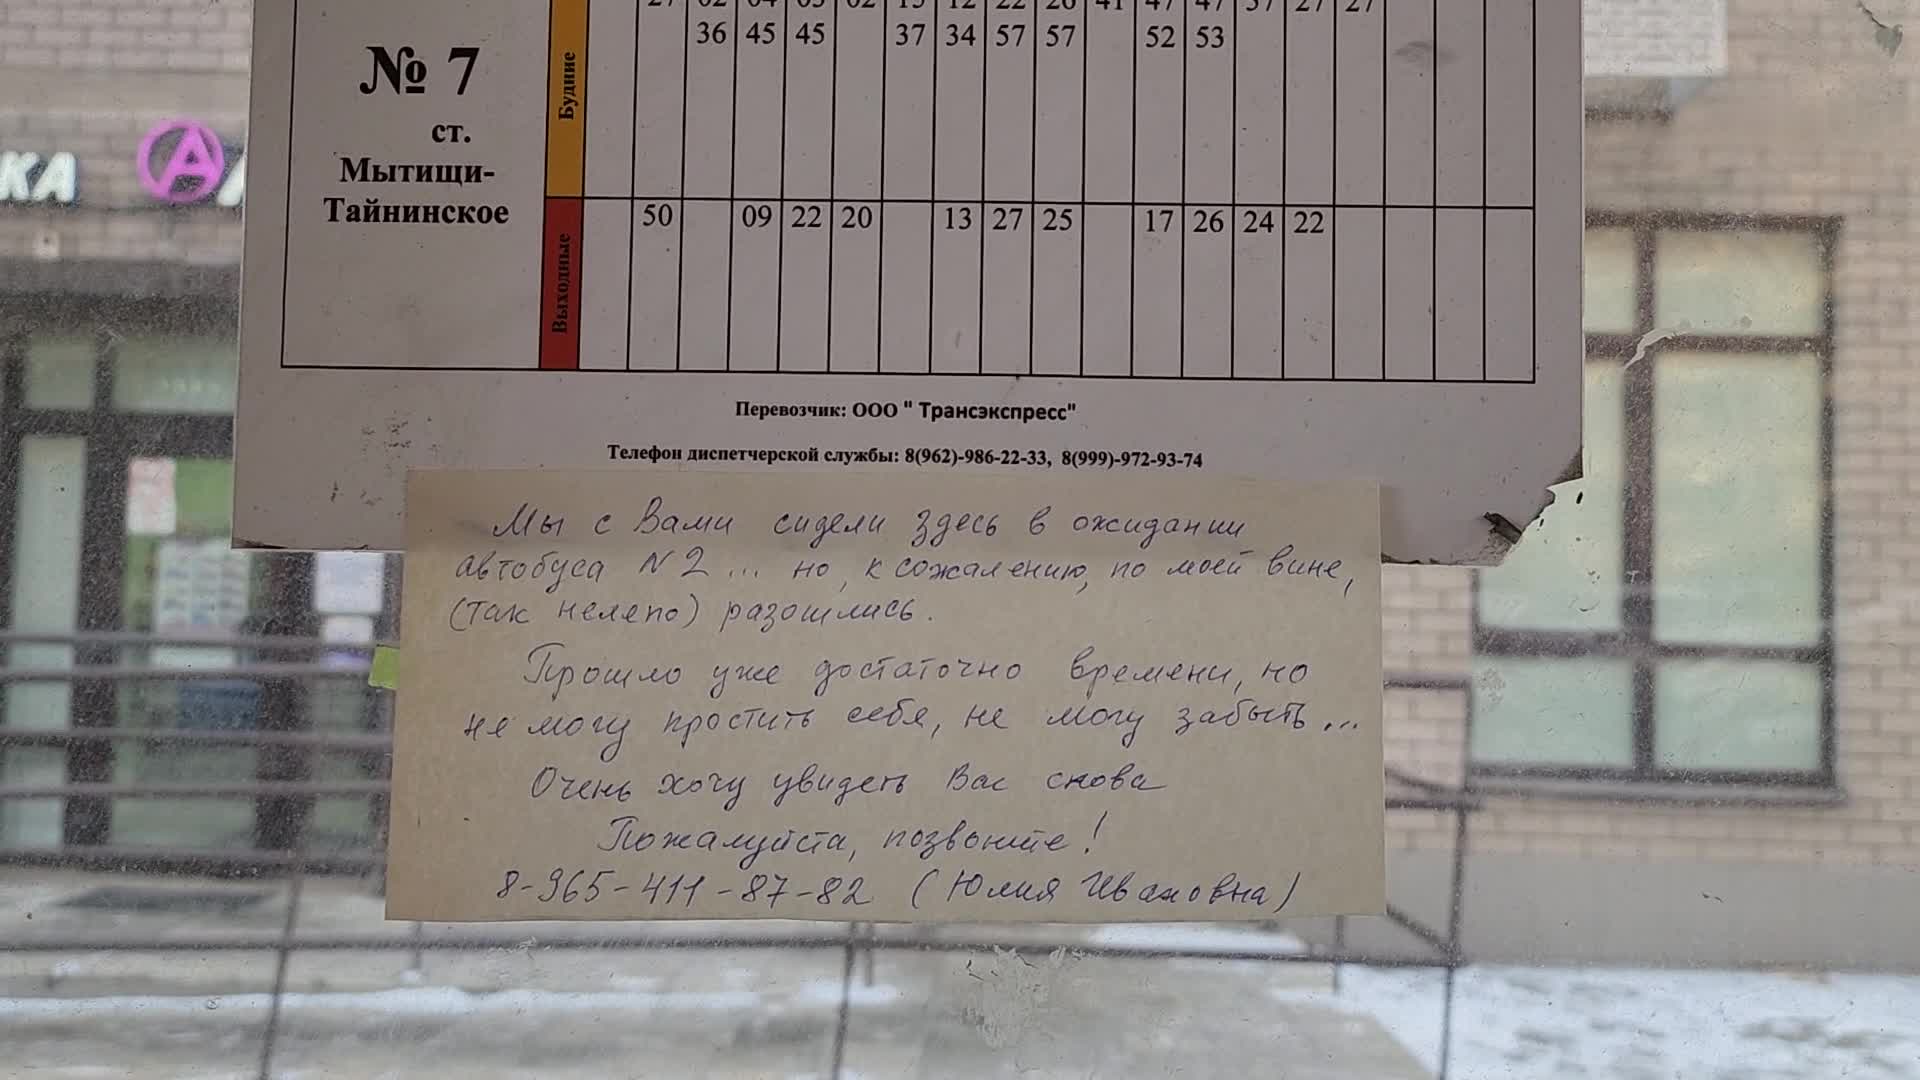 27 02 04 03 02 13 12 22 26 41 47 47 37 27 27
36 45 45 37 34 57 57 52 53
№ 7
ст.
Мытищи-
Тайнинское
Будние
КА
А
50 09 22 20 13 27 25 17 26 24 22
Выходные
Перевозчик: ООО " Трансэкспресс"
Телефон диспетчерской службы: 8(962)-986-22-33, 8(999)-972-93-74
Мы с Вами сидели здесь в ожидании
автобуса N 2 ... но, к сожалению, по моей вине,
(так нелепо) разошлись.
Прошло уже достаточно времени, но
не могу простить себя, не могу забыть...
Очень хочу увидеть Вас снова
Пожалуйста, позвоните!
8-965-411-87-82 (Юлия Ивановна)